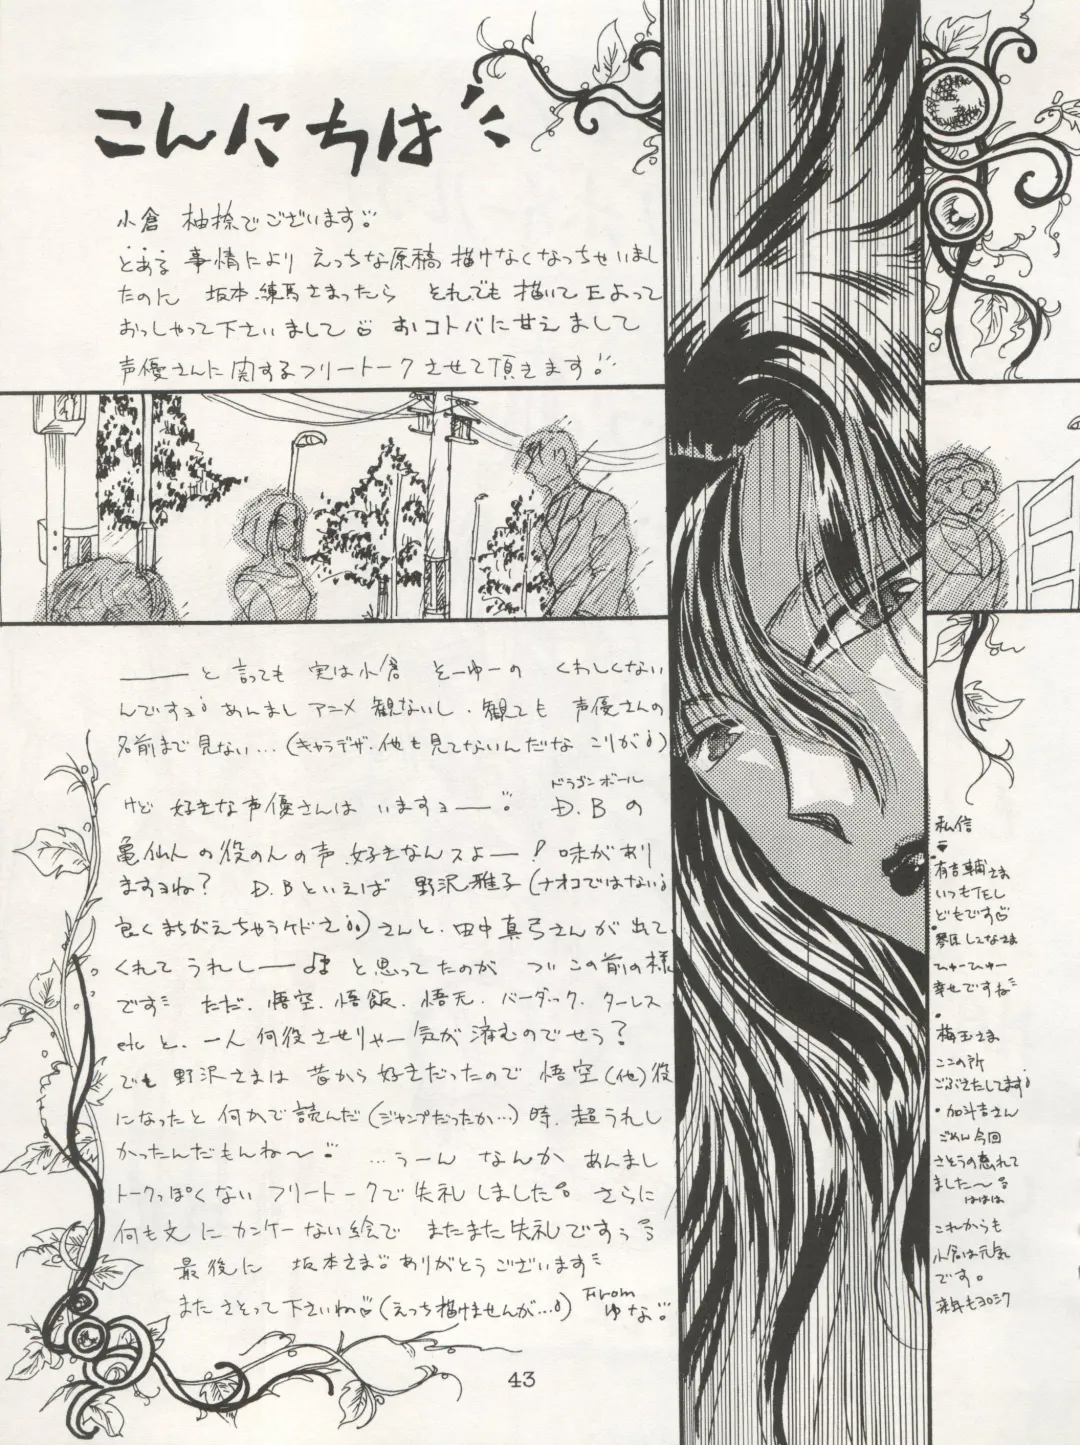 こんにちは
小倉 柚捺でございます
とある 事情により えっちな原稿 描けなくなっちゃいまし
たのに 坂本・練馬さまったら それでも 描いてもよって
おっしゃって下さいまして おコトバに甘えまして
声優さんに関するフリートークさせて頂きます
——と 言っても 実は小倉 そーゆーの くわしくない
んですョ あんまし アニメ 観ないし、観ても 声優さんの
名前まで見ない…(キャラデザ・他も見てないんだな こりが)
けど 好きな声優さんは いますョー D.B の
ドラゴンボール
亀仙人の役の人の声、好きなんスよー! 味があり
ますョね? D.Bといえば 野沢雅子(ナオコではない
良くまちがえちゃうケドさ)さんと、田中真弓さんが出て
くれて うれしー と思ってたのが ついこの前の様
です ただ、悟空、悟飯、悟天、バーダック、ターレス
etc と、一人 何役させりゃー気が済むのでせう?
でも 野沢さまは 昔から好きだったので 悟空(他)役
になったと 何かで読んだ(ジャンプだったか…)時、超うれし
かったんだもんね〜 …うーん なんか あんまし
トークっぽくない フリートークで失礼しました さらに
何も文に カンケーない絵で またまた失礼ですぅ
最後に 坂本さま ありがとうございます
また さそって下さいね(えっち描けませんが…)
From
ゆな
私信
いつもTEL
どもです
ひゅーひゅー
幸せですね
梅玉さま
ここの所
ごぶさたしてます
・加斗吉さん
ごめん今回
さそうの忘れて
ました〜
ははは
これからも
小倉は元気
です。
来年もヨロシク
43